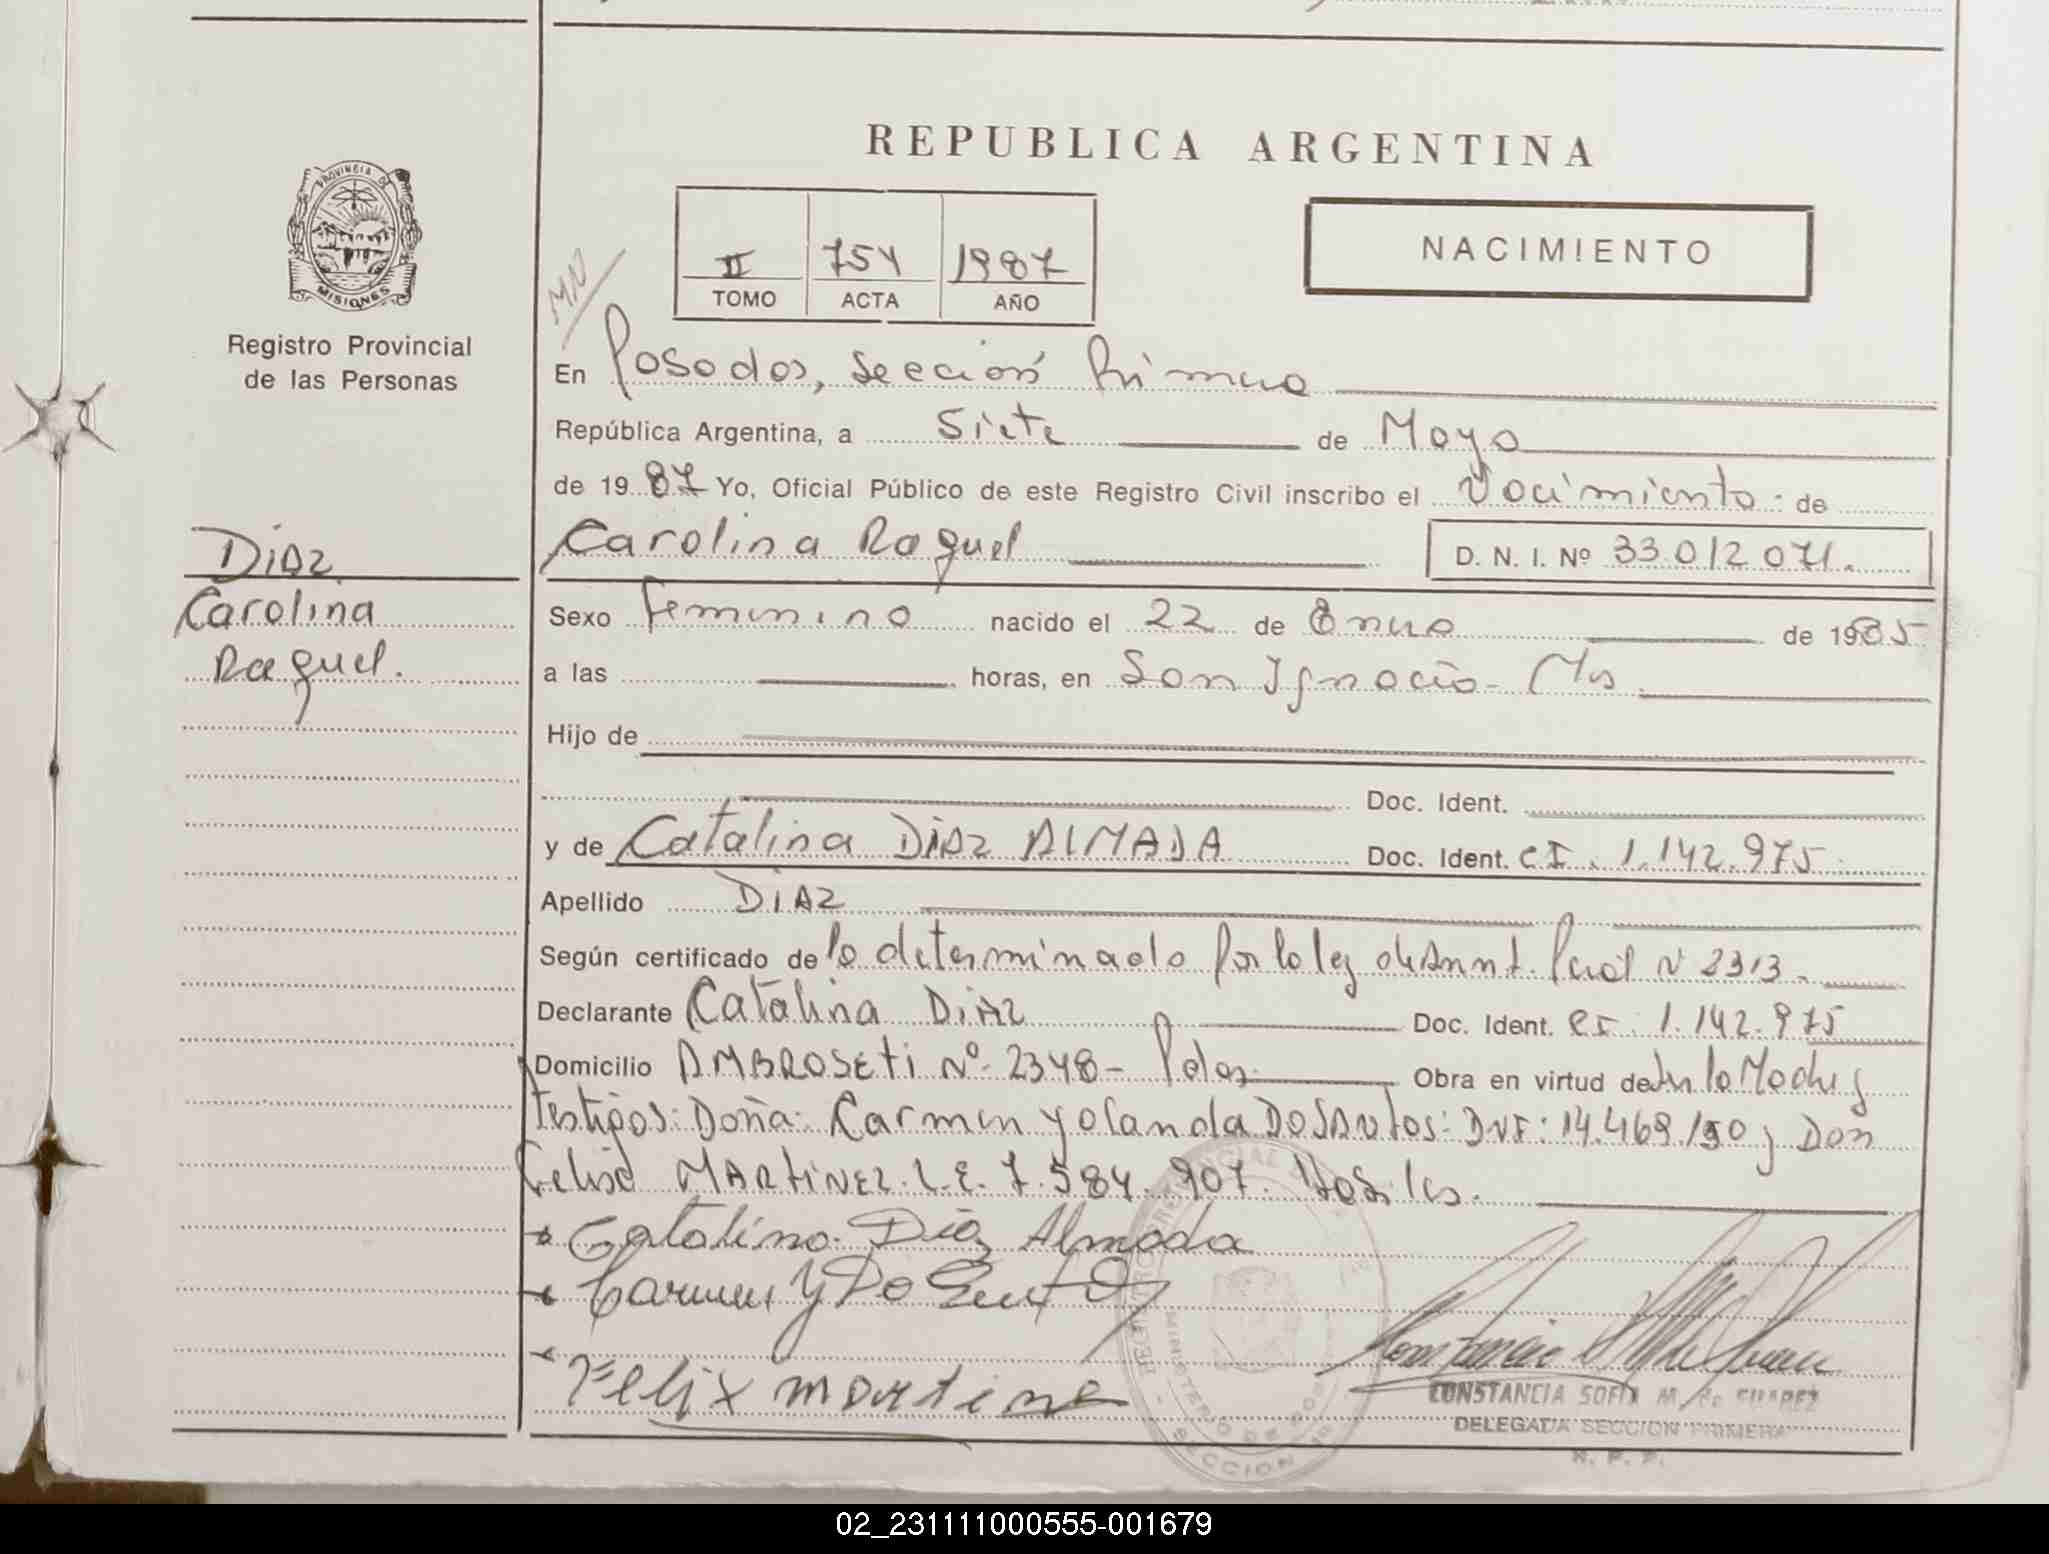 REPUBLICA ARGENTINA
PROVINCIA DE
MISIONES
Registro Provincial
de las Personas
II 754 1987
TOMO ACTA AÑO
NACIMIENTO
MN
En Posadas, Sección Primera
República Argentina, a Siete de Mayo
de 1987 Yo, Oficial Público de este Registro Civil inscribo el Nacimiento: de
Carolina Raquel D. N. I. Nº 33.012.071.
DiAz
Carolina
Raquel.
Sexo Femenino nacido el 22 de Enero de 1985
a las horas, en San Ignacio - Mns
Hijo de
Doc. Ident.
y de Catalina DiAz ALMADA Doc. Ident. CI. 1.142.975
Apellido DiAz
Según certificado de lo determinado por la ley N 2313.
Declarante Catalina DiAz Doc. Ident. CI. 1.142.975
Domicilio AMBROSEti Nº 2348 - Pdas. Obra en virtud de la Madre y
testigos: Doña: Carmen Yolanda DOSANtos: DNI: 14.469.190 y Don
Felix MARtiNEz. L.E. 7.584.907.
Catalina Diaz Almada
Carmen Y Do Santos
Felix martine
CONSTANCIA SOFIA M. de SUAREZ
DELEGADA SECCION PRIMERA
R. P. P.
02_231111000555-001679